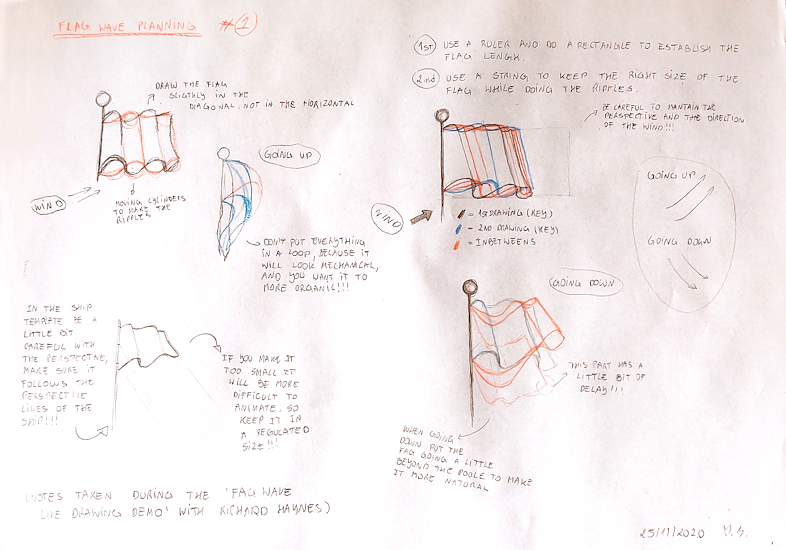 FLAG WAVE PLANNING #1
DRAW THE FLAG
SLIGTHLY IN THE
DIAGONAL, NOT IN THE HORIZONTAL
WIND
MOVING CYLINDERS
TO MAKE THE
RIPPLES
GOING UP
DON'T PUT EVERYTHING
IN A LOOP, BECAUSE IT
WILL LOOK MECHANICAL,
AND YOU WANT IT TO
MORE ORGANIC!!!
IN THE SHIP
TEMPLATE BE A
LITTLE BIT
CAREFUL WITH
THE PERSPECTIVE,
MAKE SURE IT
FOLLOWS THE
PERSPECTIVE
LINES OF THE
SHIP!!!
IF YOU MAKE IT
TOO SMALL IT
WILL BE MORE
DIFFICULT TO
ANIMATE. SO
KEEP IT IN
A REGULATED
SIZE!!!
(NOTES TAKEN DURING THE 'FAG WAVE
LIVE DRAWING DEMO' WITH RICHARD HAYNES)
1st) USE A RULER AND DO A RECTANGLE TO ESTABLISH THE
FLAG LENGH.
2nd) USE A STRING TO KEEP THE RIGHT SIZE OF THE
FLAG WHILE DOING THE RIPPLES.
BE CAREFUL TO MANTAIN THE
PERSPECTIVE AND THE DIRECTION
OF THE WIND!!!
WIND
= 1ST DRAWING (KEY)
= 2ND DRAWING (KEY)
= INBETWEENS
GOING UP
GOING DOWN
GOING DOWN
THIS PART HAS A
LITTLE BIT OF
DELAY!!!
WHEN GOING
DOWN PUT THE
FAG GOING A LITTLE
BEYOND THE POOLE TO MAKE
IT MORE NATURAL
25/11/2020